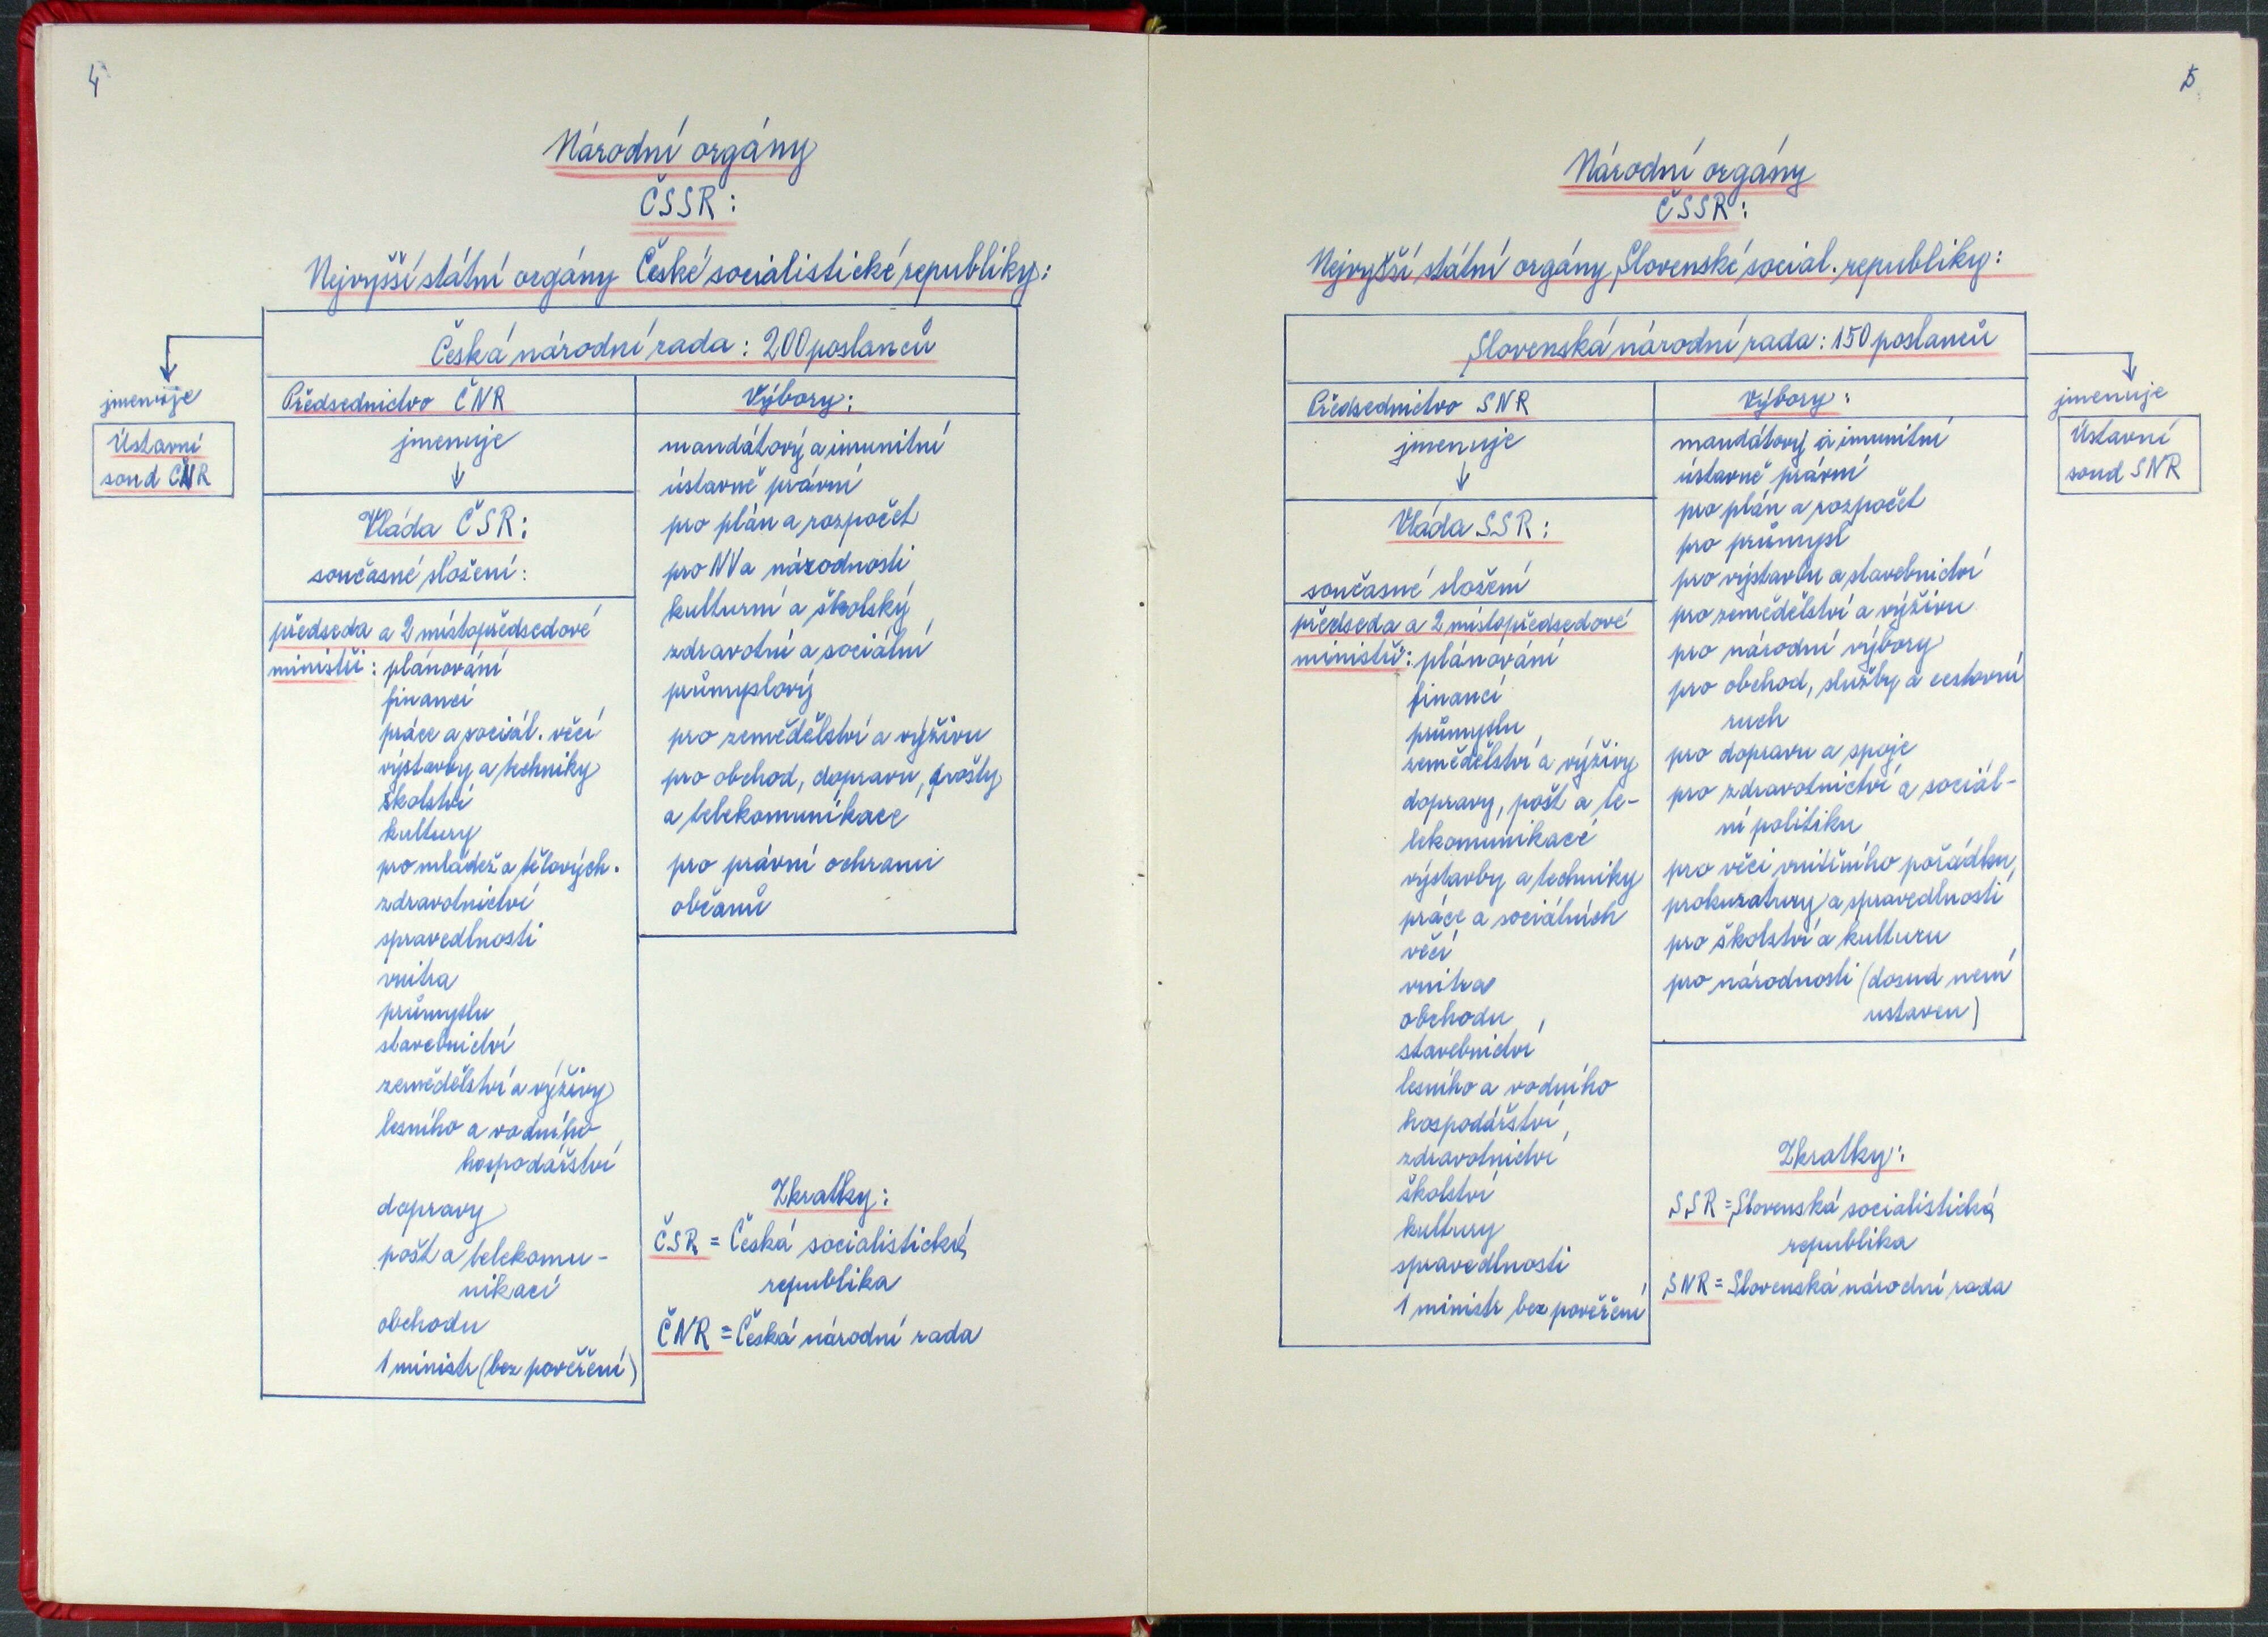 4
Národní orgány
ČSSR:
Nejvyšší státní orgány České socialistické republiky:
Česká národní rada: 200 poslanců
jmenuje
Ústavní
soud ČNR
Předsednictvo ČNR
jmenuje
Vláda ČSR:
současné složení:
předseda a 2 místopředsedové
ministři: plánování
financí
práce a sociál. věcí
výstavby a techniky
školství
kultury
pro mládež a tělových.
zdravotnictví
spravedlnosti
vnitra
průmyslu
stavebnictví
zemědělství a výživy
lesního a vodního
hospodářství
dopravy
pošt a telekomu-
nikací
obchodu
1 ministr (bez pověření)
Výbory:
mandátový a imunitní
ústavně právní
pro plán a rozpočet
pro NV a národnosti
kulturní a školský
zdravotní a sociální
průmyslový
pro zemědělství a výživu
pro obchod, dopravu, pošty
a telekomunikace
pro právní ochranu
občanů
Zkratky:
ČSR = Česká socialistická
republika
ČNR = Česká národní rada
5
Národní orgány
ČSSR:
Nejvyšší státní orgány Slovenské social. republiky:
Slovenská národní rada: 150 poslanců
Předsednictvo SNR
jmenuje
Vláda SSR:
současné složení
předseda a 2 místopředsedové
ministři: plánování
financí
průmyslu
zemědělství a výživy
dopravy, pošt a te-
lekomunikací
výstavby a techniky
práce a sociálních
věcí
vnitra
obchodu
stavebnictví
lesního a vodního
hospodářství
zdravotnictví
školství
kultury
spravedlnosti
1 ministr bez pověření
Výbory:
mandátový a imunitní
ústavně právní
pro plán a rozpočet
pro průmysl
pro výstavbu a stavebnictví
pro zemědělství a výživu
pro národní výbory
pro obchod, služby a cestovní
ruch
pro dopravu a spoje
pro zdravotnictví a sociál-
ní politiku
pro věci vnitřního pořádku,
prokuratury a spravedlnosti
pro školství a kulturu
pro národnosti (dosud není
ustaven)
jmenuje
Ústavní
soud SNR
Zkratky:
SSR = Slovenská socialistická
republika
SNR = Slovenská národní rada